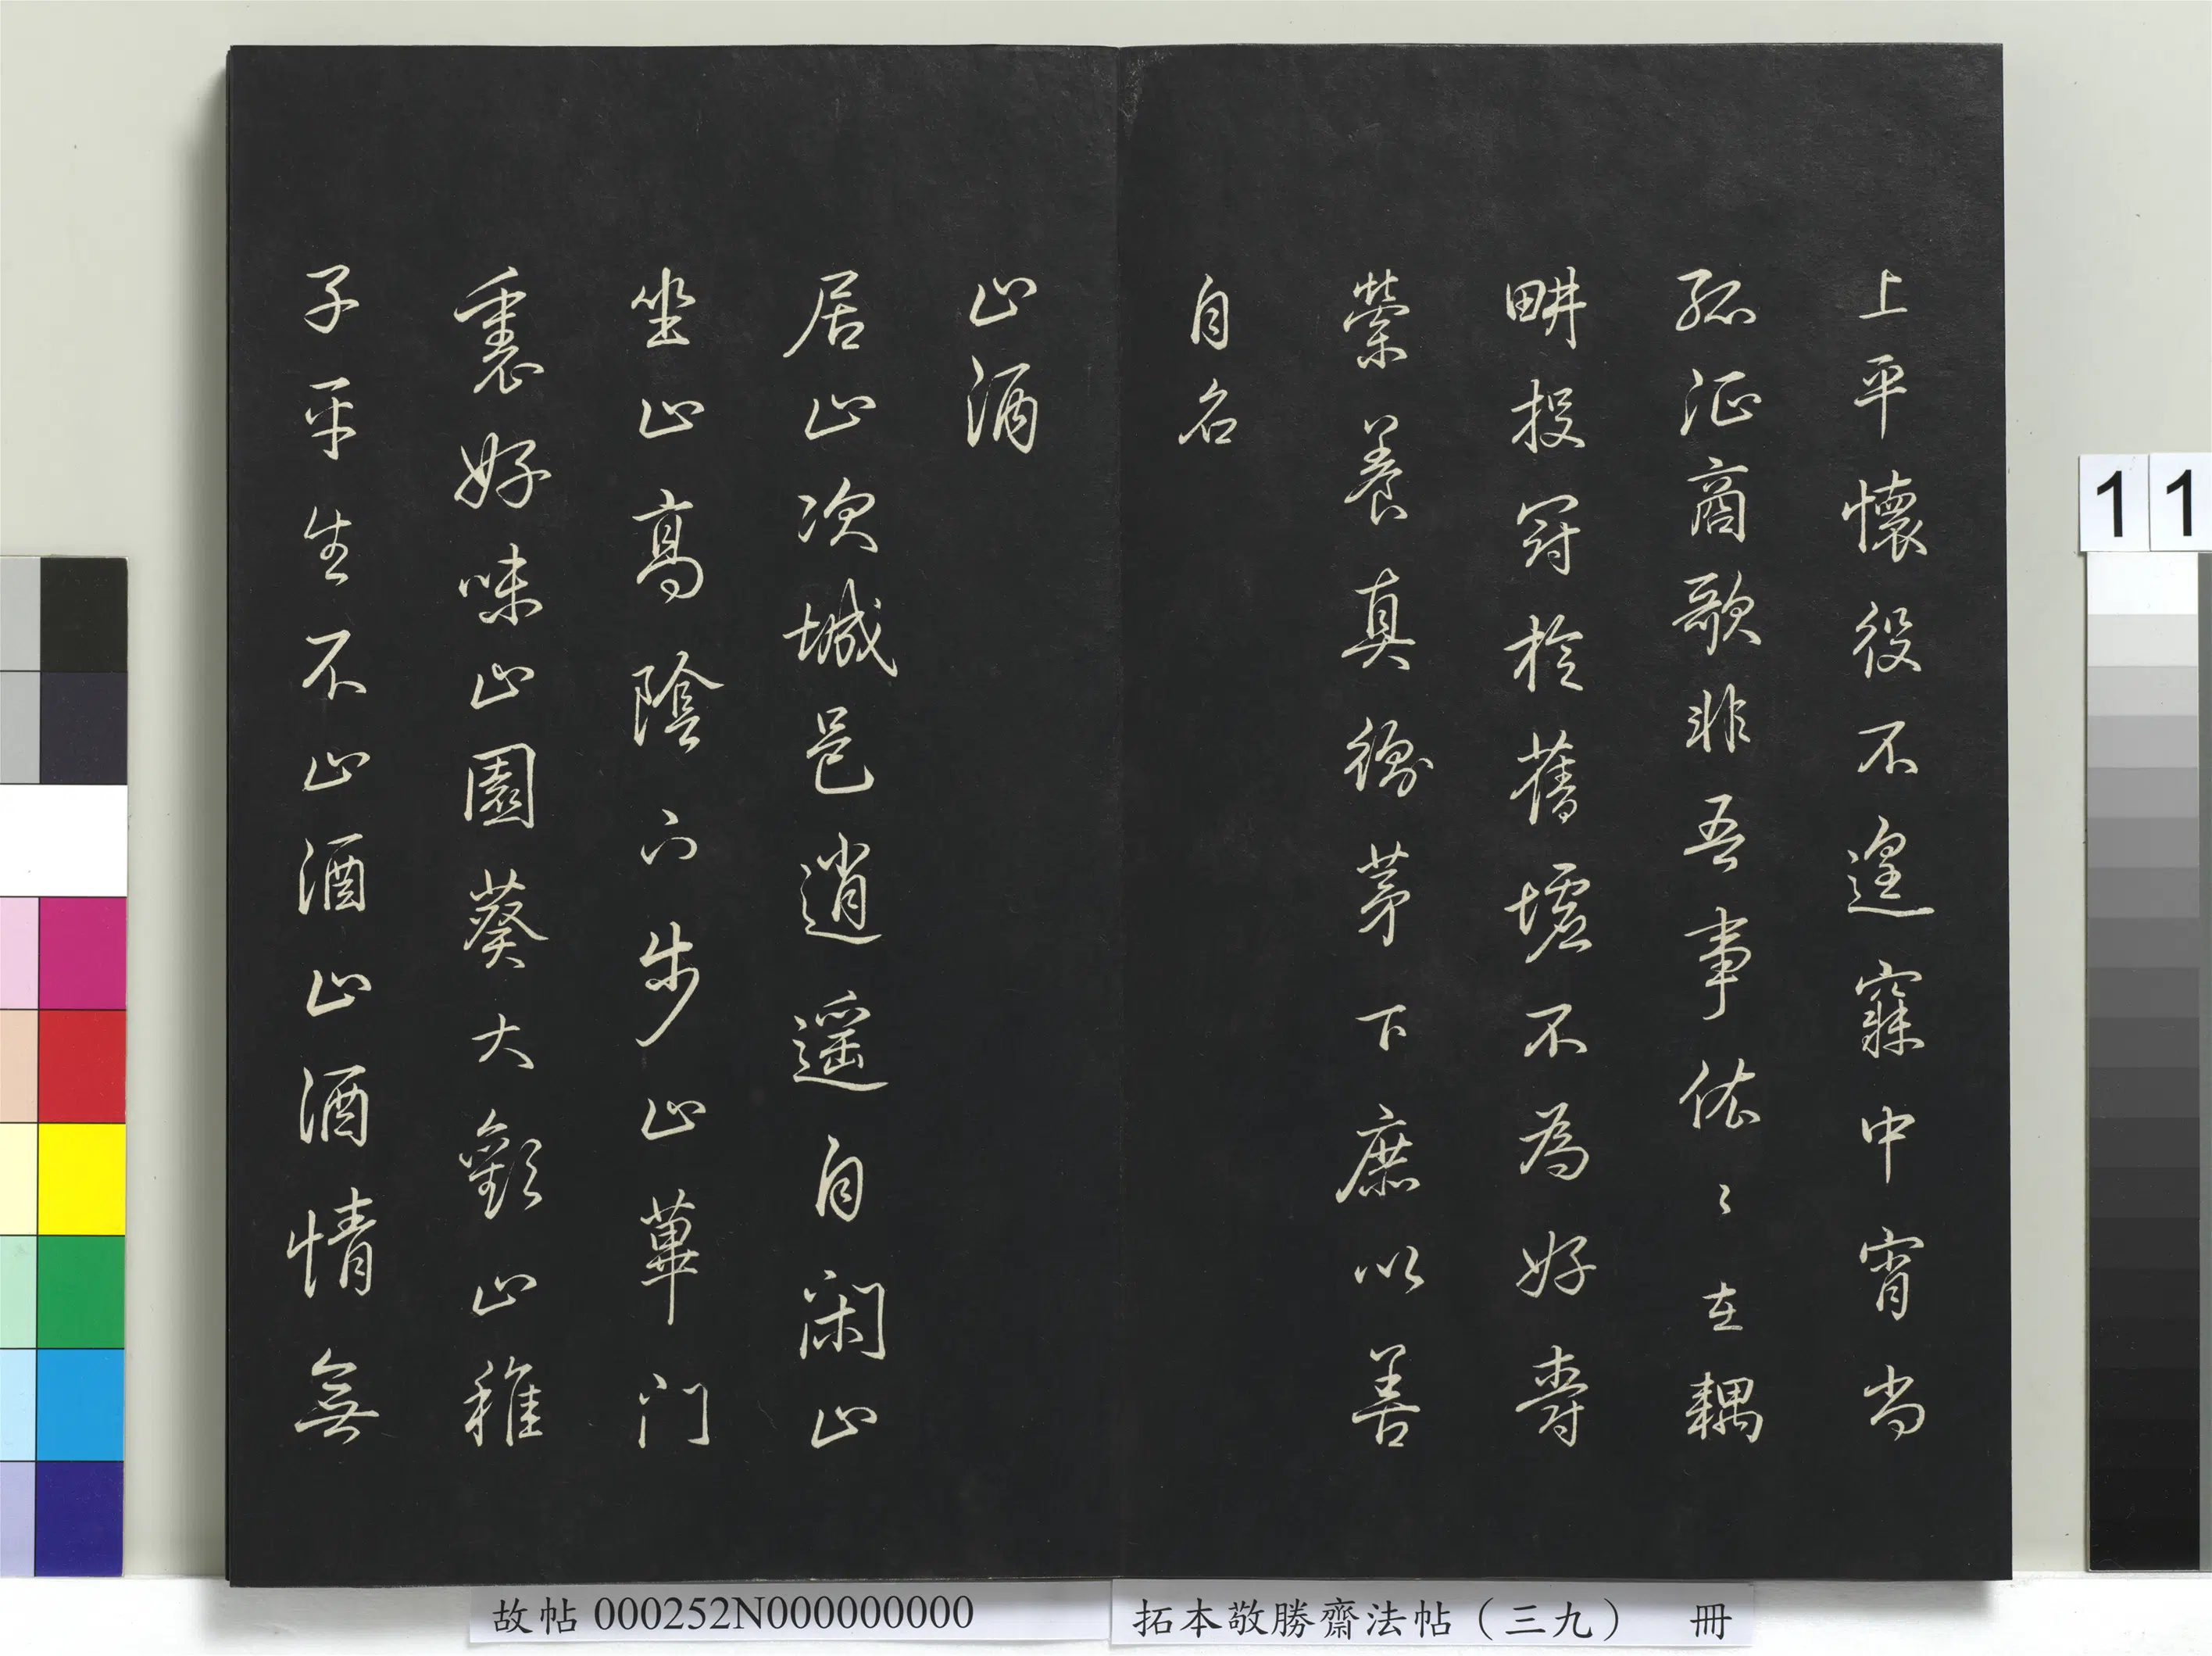 上平懷役不遑寐中宵尚
孤征商歌非吾事依〻在耦
畊投冠旋舊墟不為好爵
縈養真衡茅下庶以善
自名
止酒
居止次城邑逍遥自閑止
坐止高陰下步止蓽門
裏好味止園葵大歡止稚
子平生不止酒止酒情無
11
故帖 000252N000000000
拓本敬勝齋法帖（三九） 冊